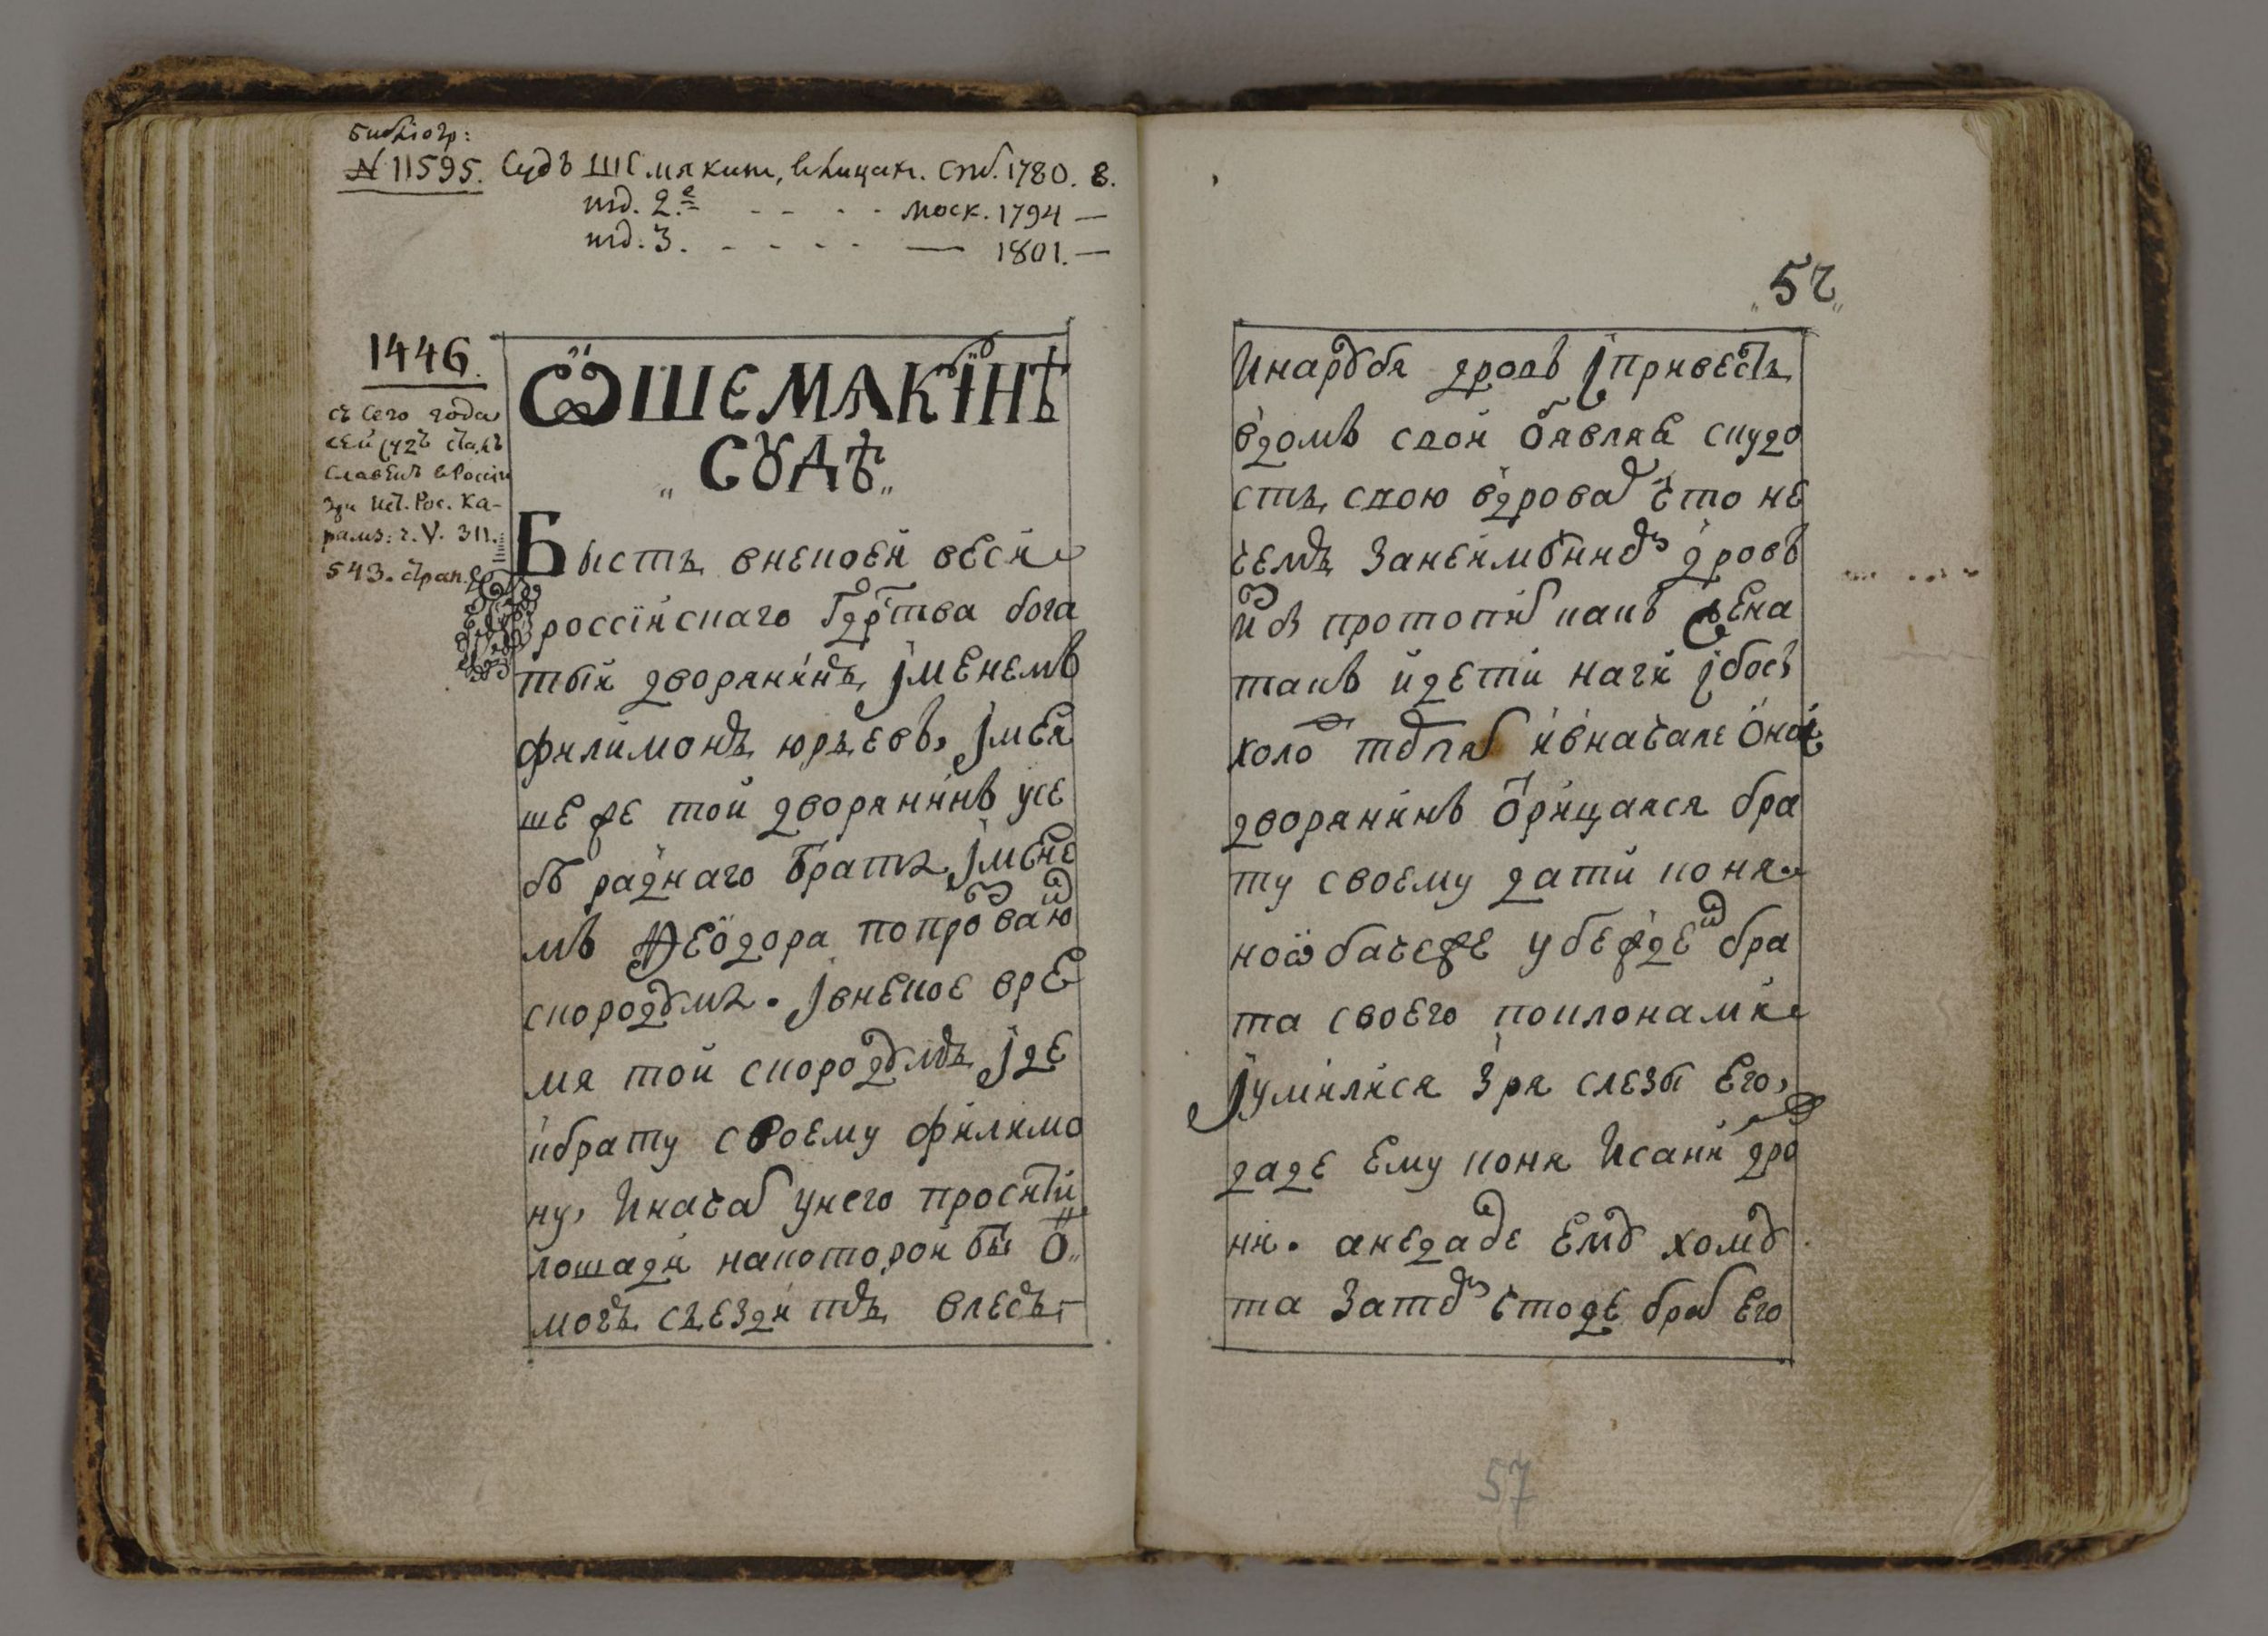 Библіогр:
N 11595. Судъ Шемякинъ, въ лицах. Спб. 1780. 8.
изд. 2.е - - - - Моск. 1794 —
изд. 3. - - - - — 1801. —
1446.
съ сего года
сей судъ сталъ
славенъ в Россіи
Зри Ист. Рос. Ка-
рамз: т. V. 311.
543. стран.
Ѽ ШЕМЯКІНѢ
„ СꙊДѢ „
Бысть внекоей веси
россійскаго Гдрⷭтва бога
тый дворянинъ, іменемъ
филимонъ юрьевъ, імея
шеже той дворянинъ усе
бѣ раднаго брата, імене
мъ Ѳеодора попрозваⷩию
скородума. івнекое вре
мя той скородумъ, іде
кбрату своему филимо
ну, Иначаⷧ унего просити
лошади накоторой бы о„
могъ съездитъ влесъ,
Инарубя дровъ іпривесть
вдомъ свой обявляя скудо
сть, свою вдроваⷯ что не
чемъ занеимениеⷨ дровъ
изⸯ протопиⷮ какъ жена
такъ идети наги ібосы
холоⷣ терпяⷮ ивначале оной
дворянинъ отрицался бра
ту своему дати коня
ноѡбачеже убежде бра
та своего поклонами
іумилися зря слезы его,
даде ему коня Исани дро
ни. анедаде ему хому
та затеⷨ чтоде браⷮ его
57
57